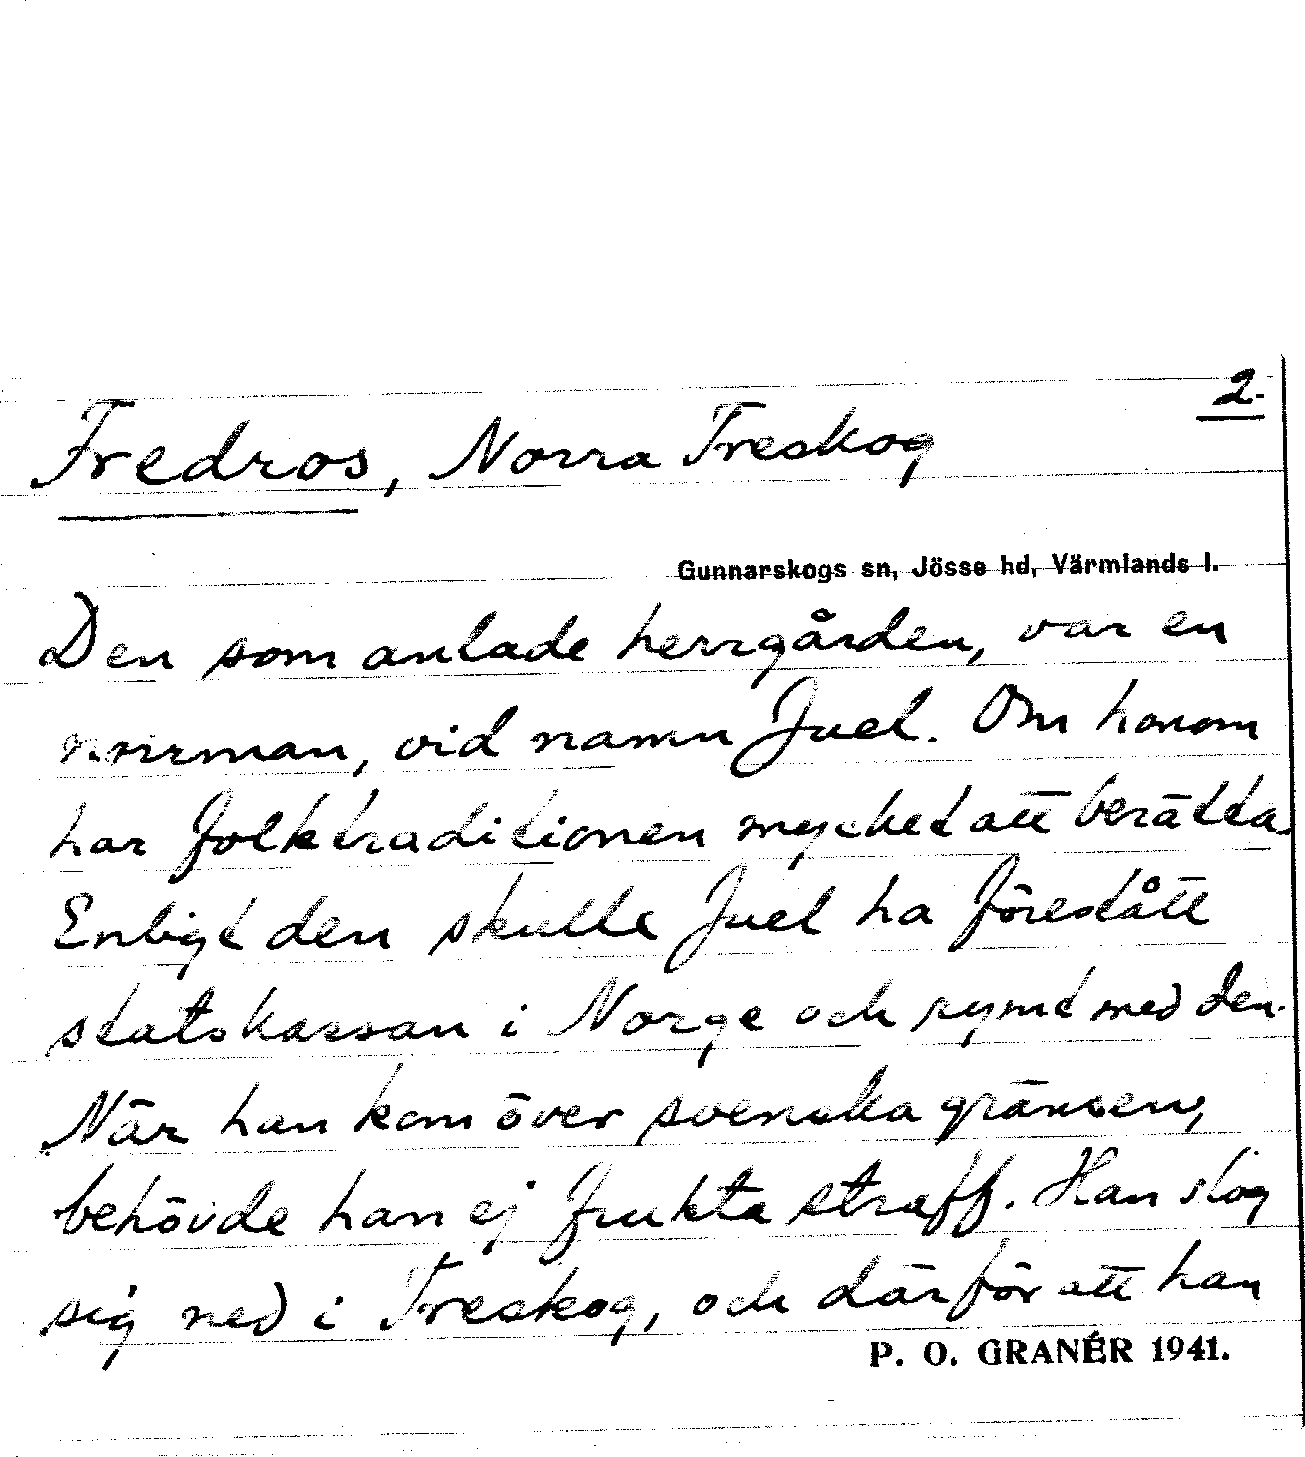 2.
Fredros, Norra Treskog
Gunnarskogs sn, Jösse hd, Värmlands l.
Den som anlade herrgården, var en
norrman, vid namn Juel. Om honom
har folktraditionen mycket att berätta.
Enligt den skulle Juel ha förestått
statskassan i Norge och rymt med den.
När han kom över svenska gränsen,
behövde han ej frukta straff. Han slog
sig ned i Treskog, och därför att han
P. O. GRANÉR 1941.